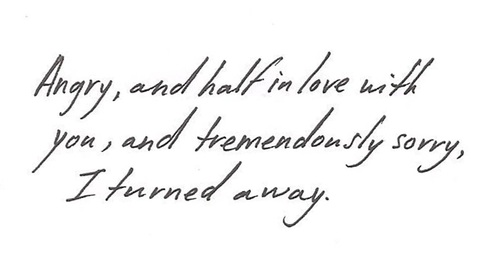 Angry, and half in love with
you, and tremendously sorry,
I turned away.